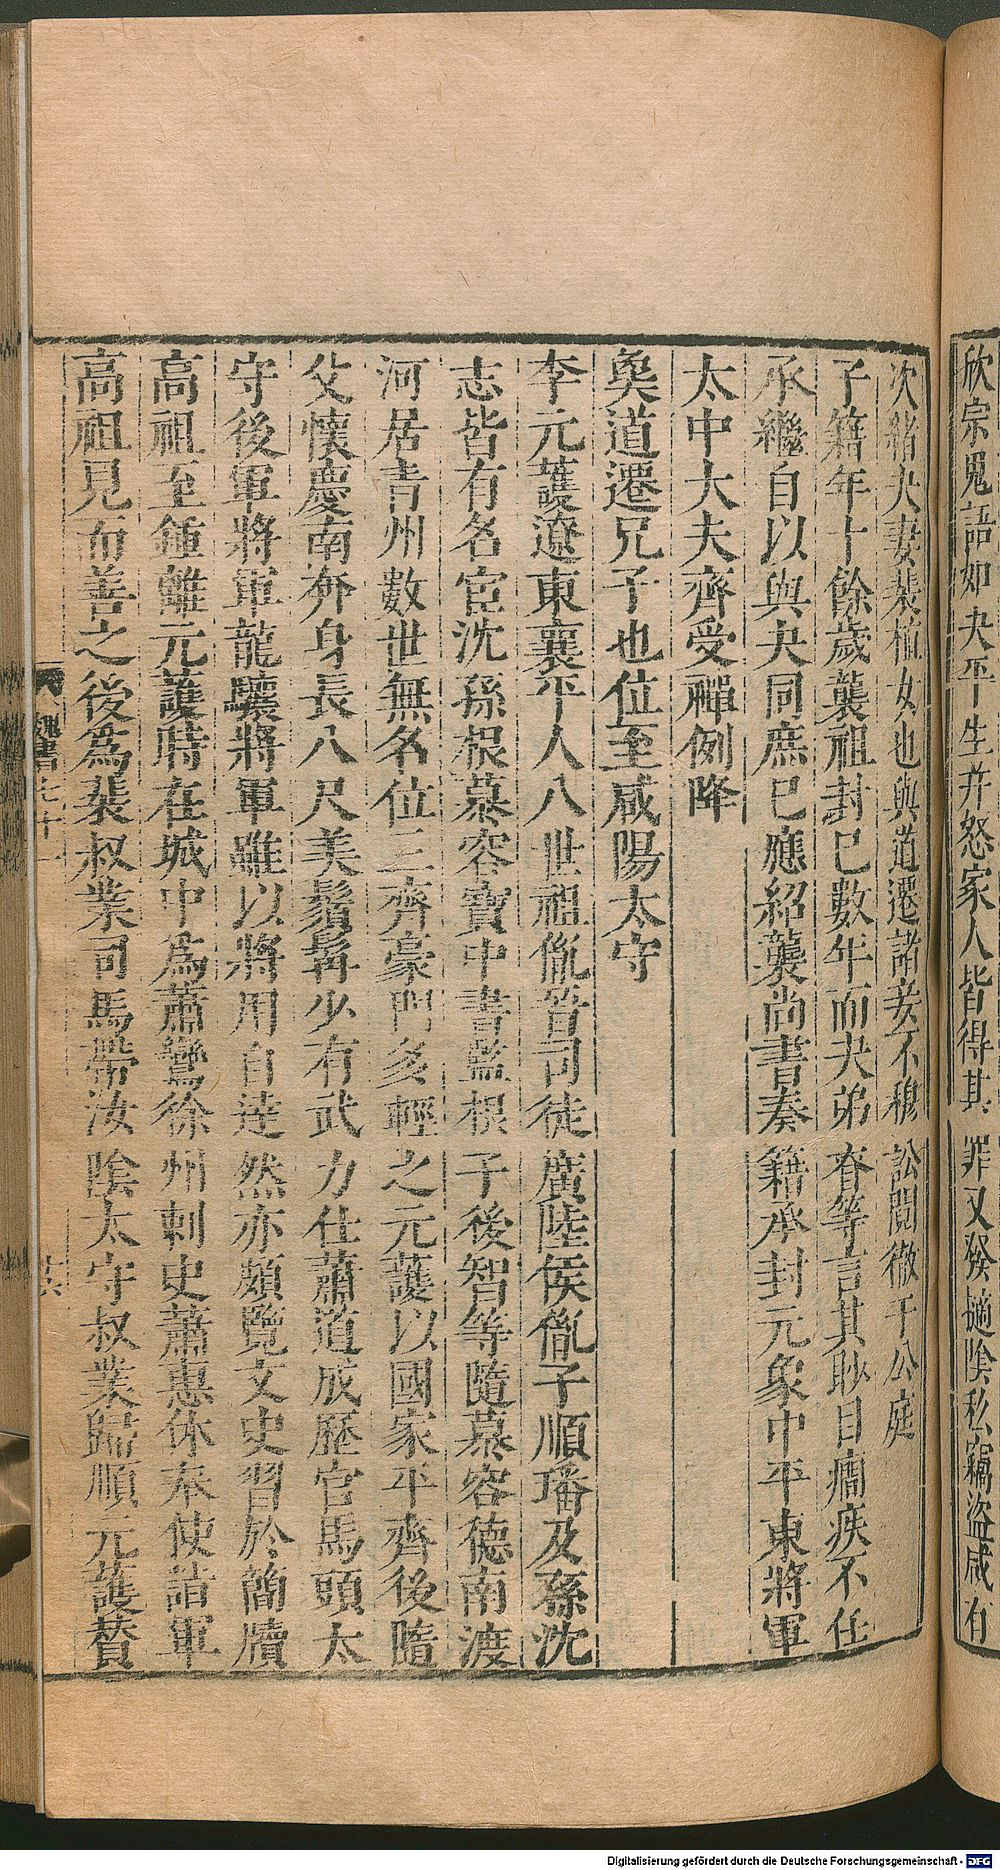 欣宗鬼語如夬平生并怒家人皆得其罪又發摘陰私竊盜咸有
次緒夬妻裴植女也與道遷諸妾不穆訟鬩徹于公庭
子籍年十餘歲襲祖封已數年而夬弟眘等言其眇目癎疾不任
承繼自以與夬同庶已應紹襲尚書奏籍承封元象中平東將軍
太中大夫齊受禪例降
奐道遷兄子也位至咸陽太守
李元護遼東襄平人八世祖胤晉司徒廣陸侯胤子順璠及孫沈
志皆有名宦沈孫根慕容寶中書監根子後智等隨慕容德南渡
河居青州數世無名位三齊豪門多輕之元護以國家平齊後隨
父懷慶南奔身長八尺美鬚髯少有武力仕蕭道成歷官馬頭太
守後軍將軍龍驤將軍雖以將用自達然亦頗覽文史習於簡牘
高祖至鍾離元護時在城中爲蕭鸞徐州刺史蕭惠休奉使詣軍
高祖見而善之後爲裴叔業司馬帶汝陰太守叔業歸順元護贊
魏書
Digitalisierung gefördert durch die Deutsche Forschungsgemeinschaft - DFG